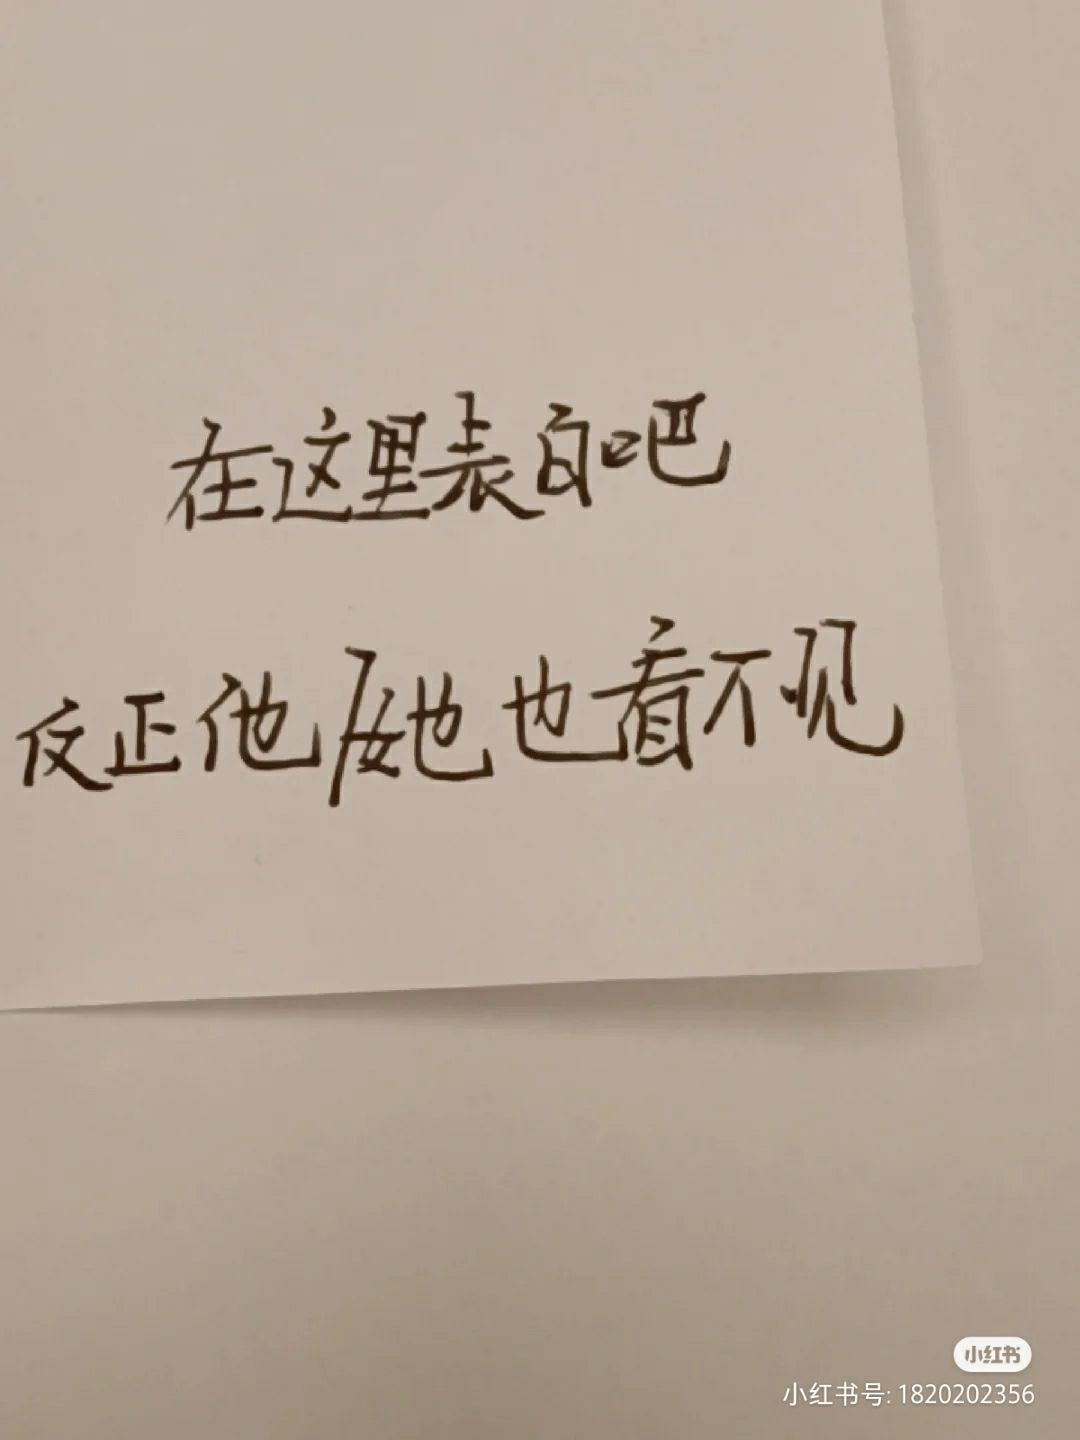 在这里表白吧
反正他/她也看不见
小红书
小红书号: 1820202356